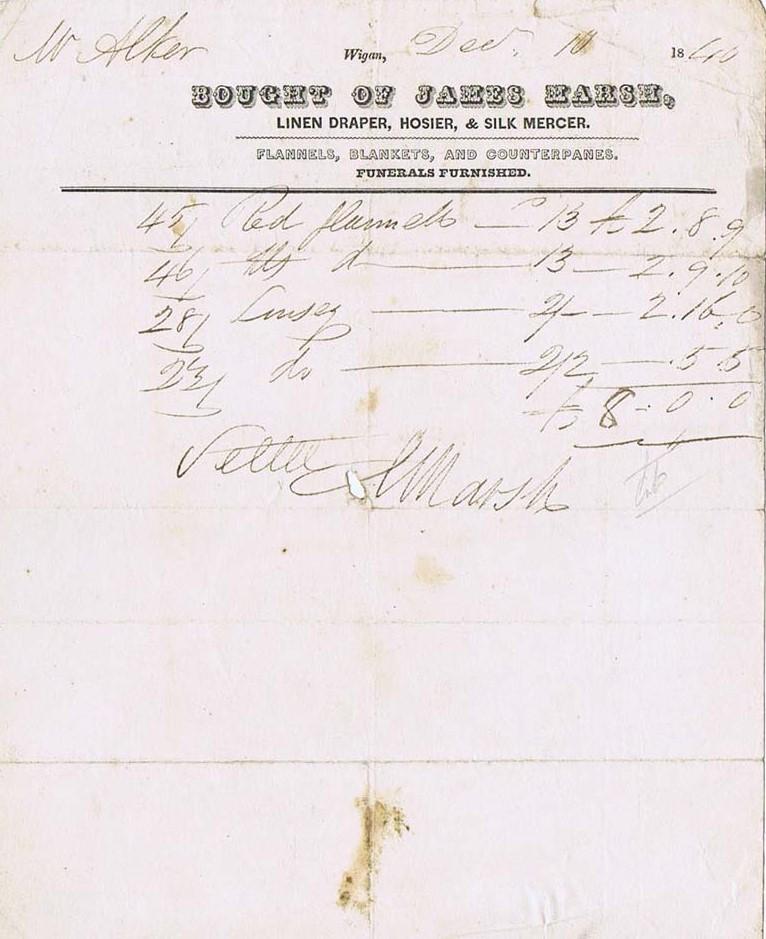 Mr Alker Wigan, Decr. 10 1840
BOUGHT OF JAMES MARSH,
LINEN DRAPER, HOSIER, & SILK MERCER.
FLANNELS, BLANKETS, AND COUNTERPANES.
FUNERALS FURNISHED.
45/ Red flannels — 13 £ 2.8.9
46/ d — 13 — 2.9.10
28/ Linsey — 2/- — 2.16.0
23/ do — 2/2 — .5.5
£ 8-0.0
Settled J Marsh